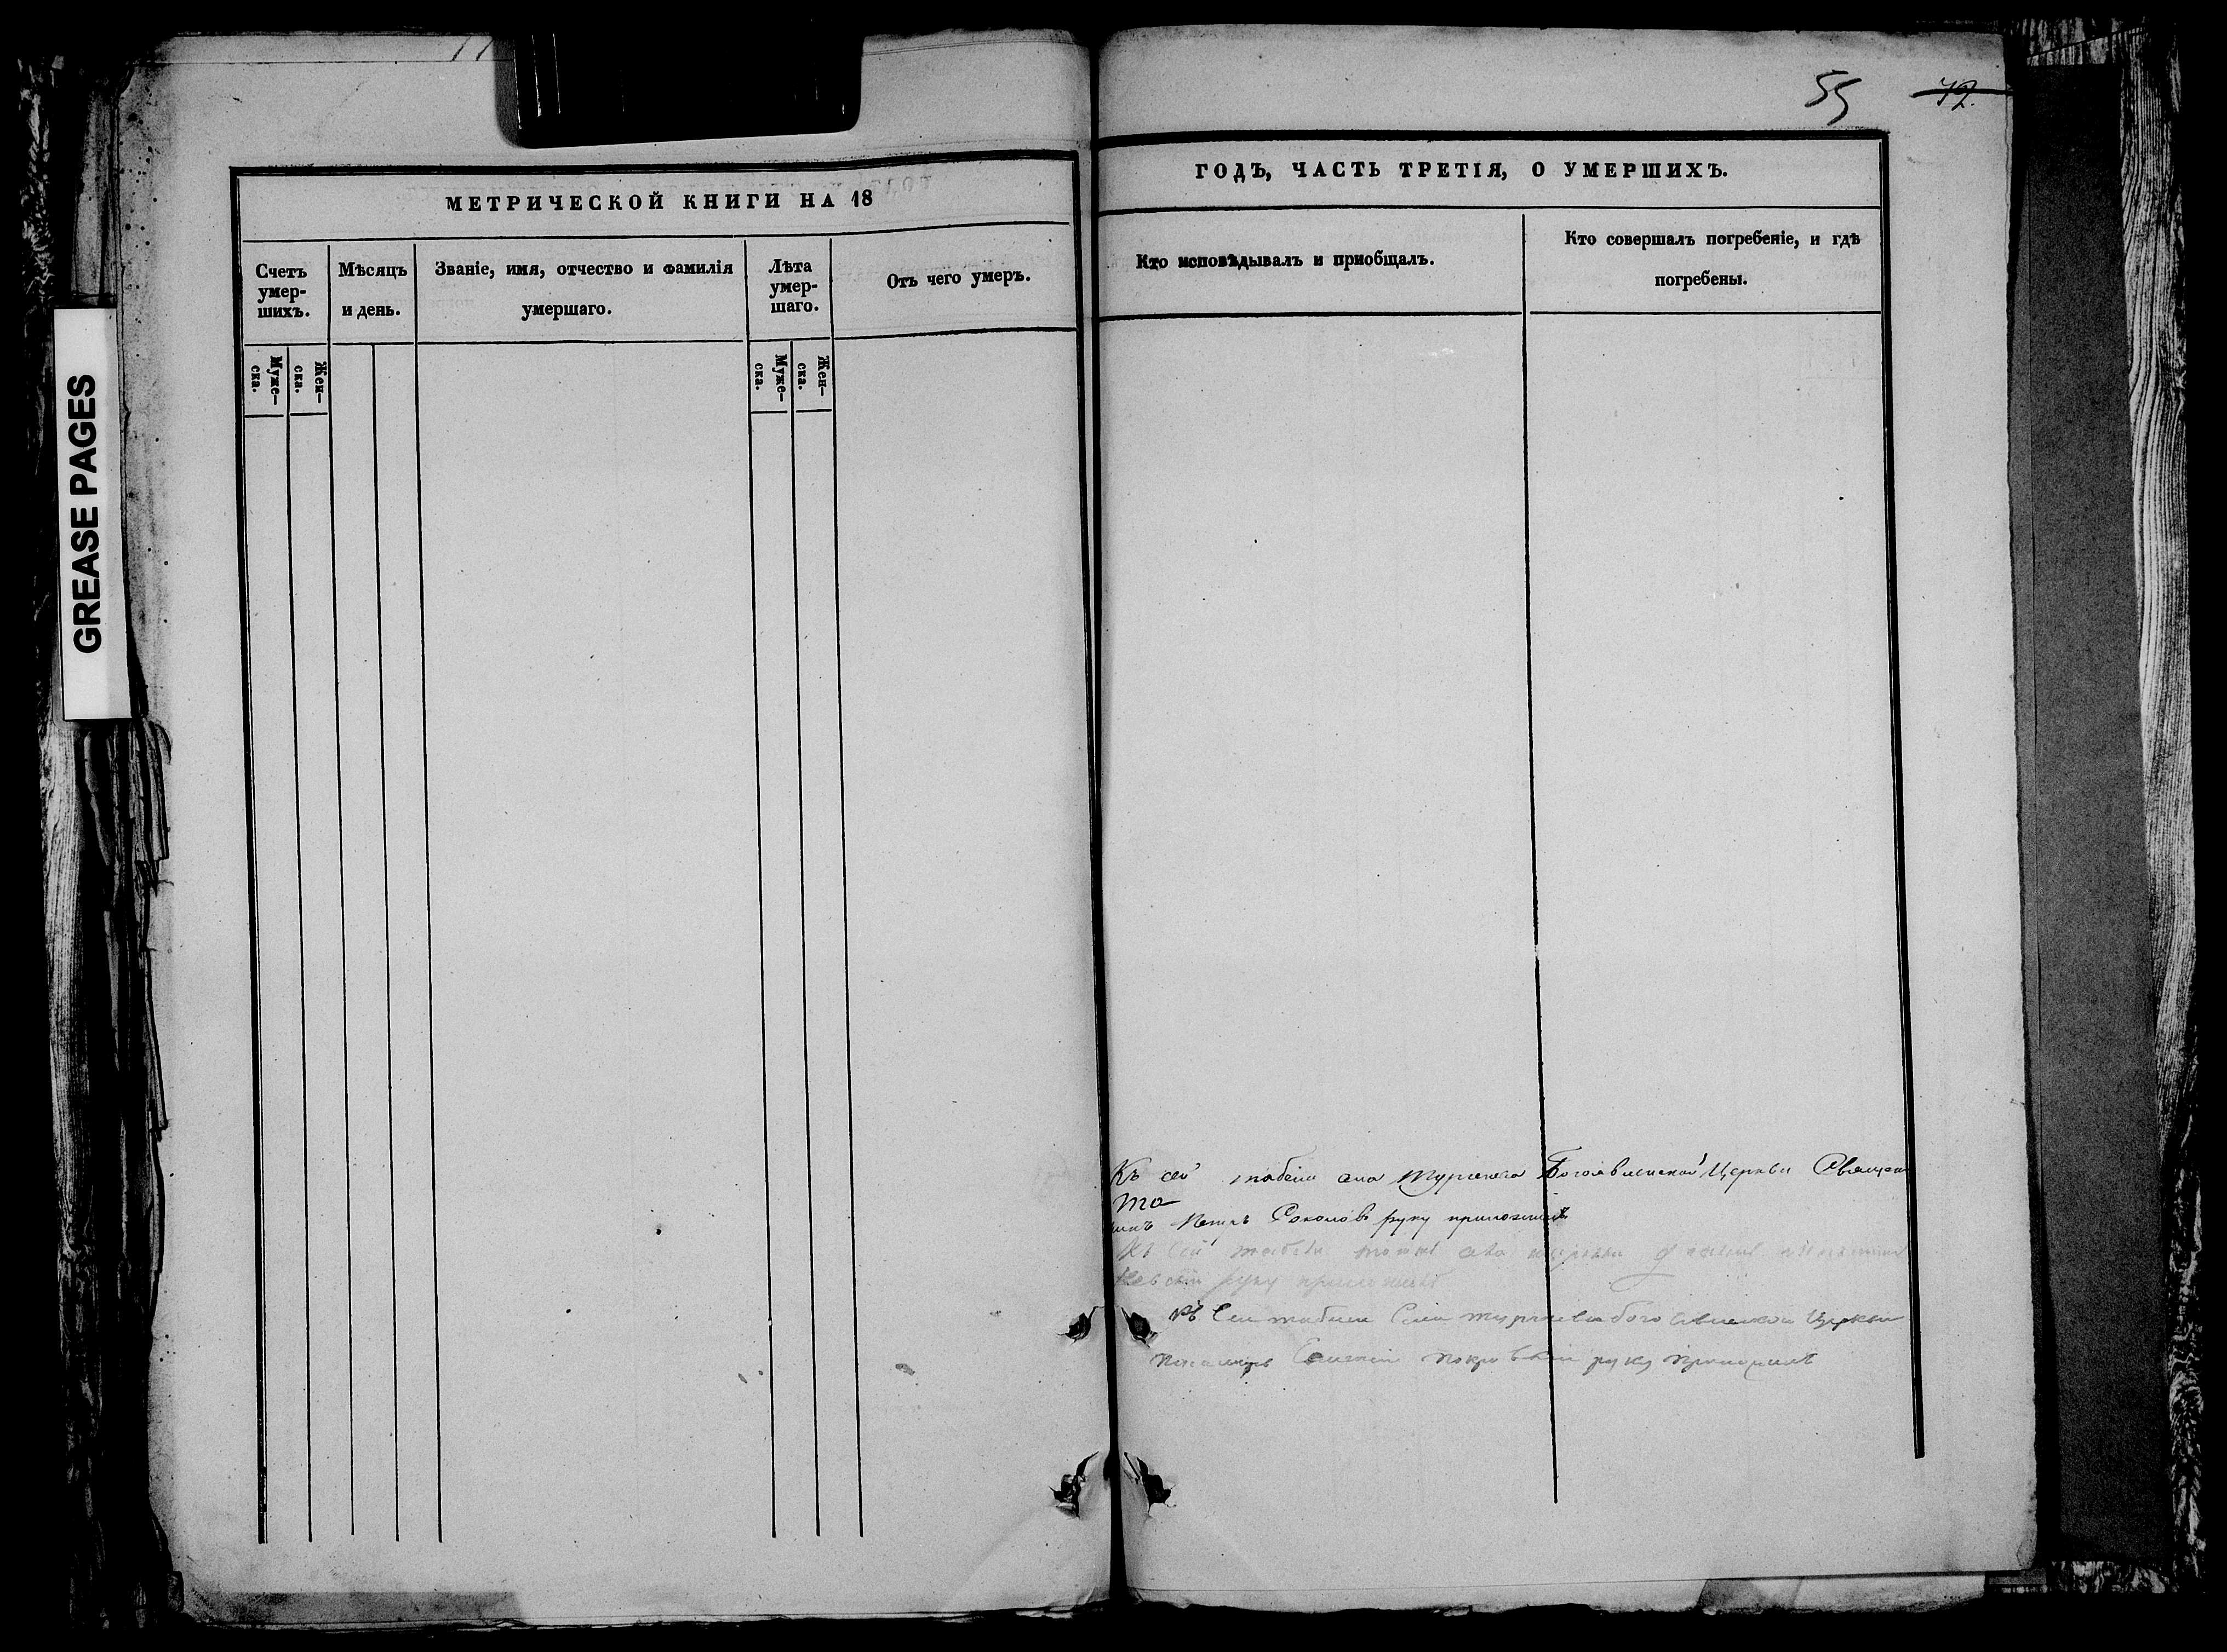 GREASE PAGES
МЕТРИЧЕСКОЙ КНИГИ НА 18
Счетъ умер-
шихъ.
Мѣсяцъ
и день.
Званіе, имя, отчество и фамилія
умершаго.
Лѣта
умер-
шаго.
Отъ чего умеръ.
Муже-
ска.
Жен-
ска.
Муже-
ска.
Жен-
ска.
55
42.
ГОДЪ, ЧАСТЬ ТРЕТІЯ, О УМЕРШИХЪ.
Кто исповѣдывалъ и пріобщалъ.
Кто совершалъ погребеніе, и гдѣ
погребены.
Къ сей табели села Богоявленской Церкви Священ
Петръ Соколовъ руку приложилъ
Къ сей табели руку приложилъ
Къ сей табели села Церкви
Покровскій руку приложилъ